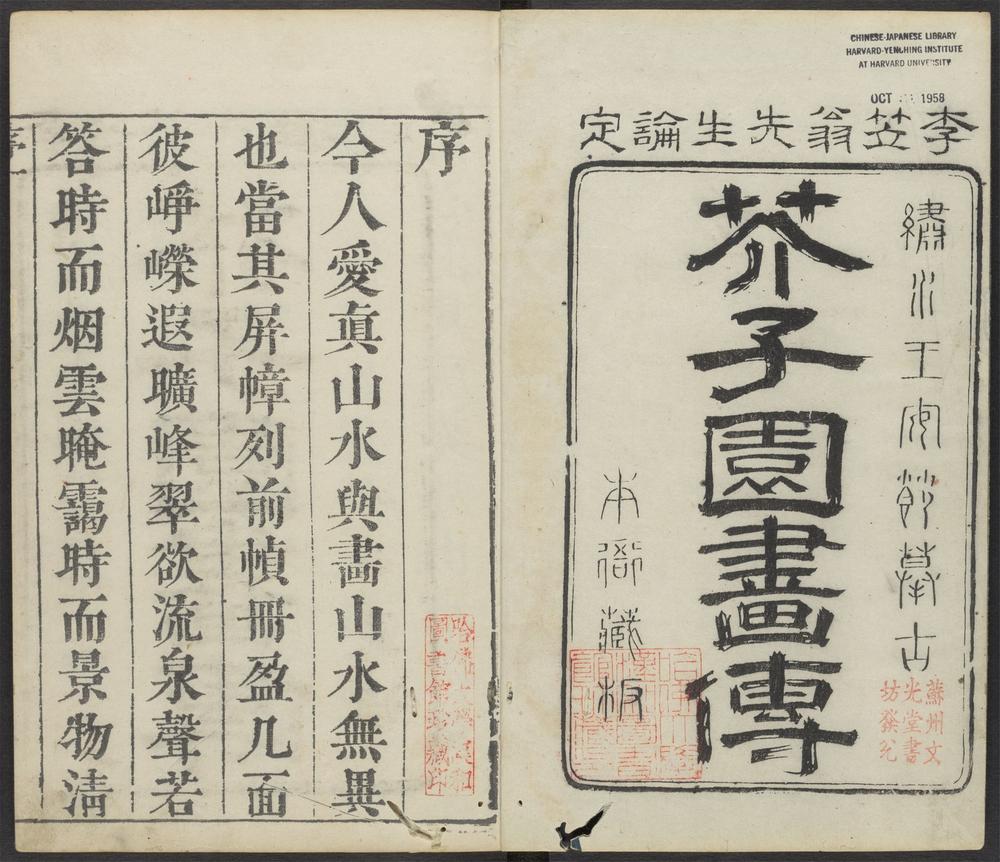 CHINESE-JAPANESE LIBRARY
HARVARD-YENCHING INSTITUTE
AT HARVARD UNIVERSITY
OCT 1958
李笠翁先生論定
繡水王安節摹古
芥子園畫傳
本衙藏板
蘇州文
光堂書
坊發兌
序
今人愛眞山水與畵山水無異
也當其屏幛列前幀冊盈几面
彼崢嶸遐曠峰翠欲流泉聲若
答時而烟雲晻靄時而景物清
哈佛大學漢和
圖書館珍藏印